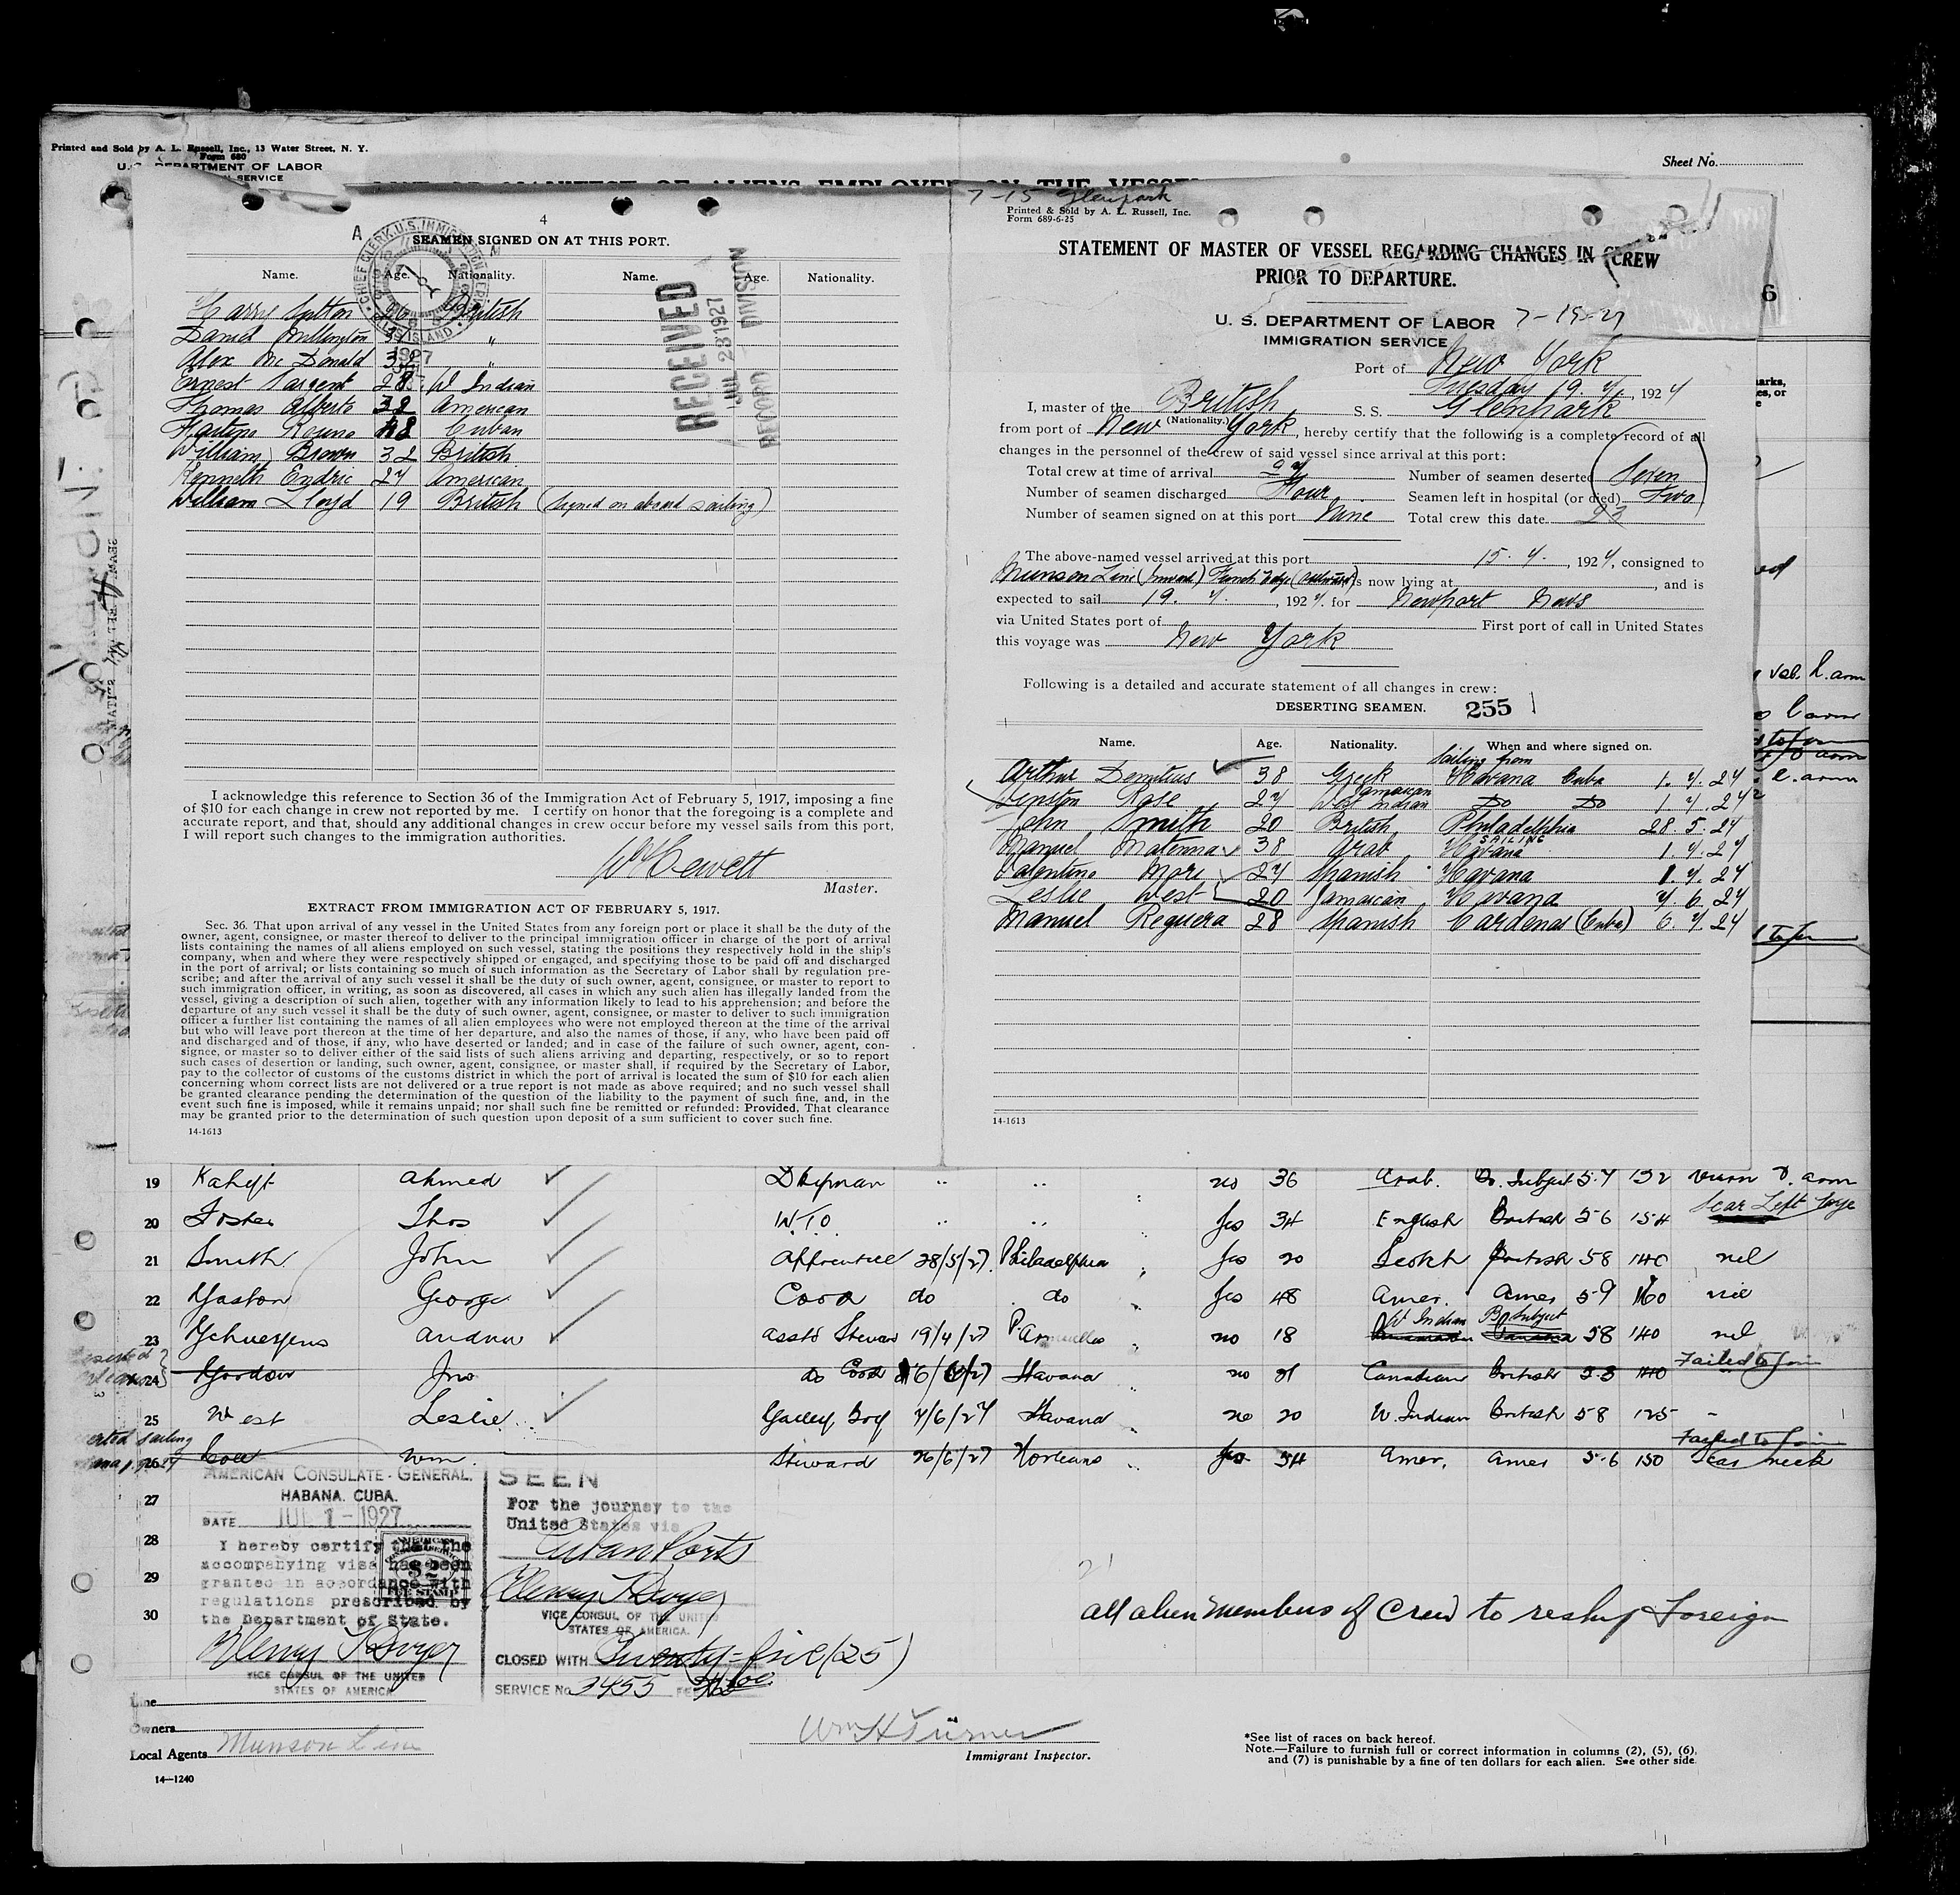 Printed and Sold by A. L. Russell, Inc., 13 Water Street, N. Y.
Form 680
U.S. DEPARTMENT OF LABOR
SERVICE
Sheet No.
LIST OR MANIFEST OF ALIENS EMPLOYED ON THE VESSEL
4
SEAMEN SIGNED ON AT THIS PORT.
CHIEF CLERK U.S. IMMIGRATION
ELLIS ISLAND
RECEIVED
JUL 23 1927
RECORD DIVISION
Name. Age. Nationality. Name. Age. Nationality.
Harry Sutton 26 British
David Millington "
Alex Mc Donald "
Ernest Sargent 28 W Indian
Thomas Alberto 32 American
Rosino 48 Cuban
William Brown 32 British
Kenneth Endric 27 American
William Lloyd 19 British (signed on aboard sailing)
I acknowledge this reference to Section 36 of the Immigration Act of February 5, 1917, imposing a fine
of $10 for each change in crew not reported by me. I certify on honor that the foregoing is a complete and
accurate report, and that, should any additional changes in crew occur before my vessel sails from this port,
I will report such changes to the immigration authorities.
W Hewett
Master.
EXTRACT FROM IMMIGRATION ACT OF FEBRUARY 5, 1917.
Sec. 36. That upon arrival of any vessel in the United States from any foreign port or place it shall be the duty of the
owner, agent, consignee, or master thereof to deliver to the principal immigration officer in charge of the port of arrival
lists containing the names of all aliens employed on such vessel, stating the positions they respectively hold in the ship's
company, when and where they were respectively shipped or engaged, and specifying those to be paid off and discharged
in the port of arrival; or lists containing so much of such information as the Secretary of Labor shall by regulation pre-
scribe; and after the arrival of any such vessel it shall be the duty of such owner, agent, consignee, or master to report to
such immigration officer, in writing, as soon as discovered, all cases in which any such alien has illegally landed from the
vessel, giving a description of such alien, together with any information likely to lead to his apprehension; and before the
departure of any such vessel it shall be the duty of such owner, agent, consignee, or master to deliver to such immigration
officer a further list containing the names of all alien employees who were not employed thereon at the time of the arrival
but who will leave port thereon at the time of her departure, and also the names of those, if any, who have been paid off
and discharged and of those, if any, who have deserted or landed; and in case of the failure of such owner, agent, con-
signee, or master so to deliver either of the said lists of such aliens arriving and departing, respectively, or so to report
such cases of desertion or landing, such owner, agent, consignee, or master shall, if required by the Secretary of Labor,
pay to the collector of customs of the customs district in which the port of arrival is located the sum of $10 for each alien
concerning whom correct lists are not delivered or a true report is not made as above required; and no such vessel shall
be granted clearance pending the determination of the question of the liability to the payment of such fine, and, in the
event such fine is imposed, while it remains unpaid; nor shall such fine be remitted or refunded: Provided, That clearance
may be granted prior to the determination of such question upon deposit of a sum sufficient to cover such fine.
14-1613
7-15 Glenpark
Printed & Sold by A. L. Russell, Inc.
Form 689-6-25
STATEMENT OF MASTER OF VESSEL REGARDING CHANGES IN CREW
PRIOR TO DEPARTURE.
U. S. DEPARTMENT OF LABOR 7-19-27
IMMIGRATION SERVICE
Port of New York
Tuesday 19. 7., 1927
I, master of the British S. S. Glenpark
(Nationality.)
from port of New York, hereby certify that the following is a complete record of all
changes in the personnel of the crew of said vessel since arrival at this port:
Total crew at time of arrival Number of seamen deserted Seven
Number of seamen discharged Four Seamen left in hospital (or died) Two
Number of seamen signed on at this port Nine Total crew this date 23
The above-named vessel arrived at this port 15. 7., 1927, consigned to
Munson Line (Inward) (outward) is now lying at , and is
expected to sail 19. 7., 1927. for Newport News
via United States port of First port of call in United States
this voyage was New York
Following is a detailed and accurate statement of all changes in crew:
DESERTING SEAMEN. 255
Name. Age. Nationality. When and where signed on.
Sailing from
Arthur Demitius 38 Greek Havana Cuba 1. 7. 27
Winston Rose 27 Jamaican West Indian Do Do 1. 7. 27
John Smith 20 British Philadelphia 28. 5. 27
SAILING
Manuel Materna 38 Arab Havana 1. 7. 27
Valentino More 27 Spanish Havana 1. 7. 27
Leslie West 20 Jamaican Havana 7. 6. 27
Manuel Requera 28 Spanish Cardenas (Cuba) 6. 7. 27
14-1613
19 ahmed .. .. no 36 Arab. Br. Subject 5.7 152
20 Foster Thos .. .. Yes 34 English British 5 6 154 Scar Left
21 Smith John Apprentice 28/5/27 Philadelphia Yes 20 Scotch British 58 140 nil
22 Gaston George Cook do do Yes 48 Amer. Amer 5 9 160 nil
23 Asst Steward 19/4/27 no 18 W Indian Br Subject 58 140 nil
24 Gordon Jno do Cook Havana no Canadian British 5 8 140 Failed to join
25 West Leslie Galley Boy 7/6/27 Havana no 20 W. Indian British 58 125 -
26 Wm. Steward 26/6/27 N orleans Yes 54 Amer. Amer 5.6 150 Failed to join Scar neck
27
28
29
30
AMERICAN CONSULATE-GENERAL.
HABANA. CUBA.
DATE JUL 1-1927
I hereby certify that the
accompanying visa has been
granted in accordance with
regulations prescribed by
the Department of State.
VICE CONSUL OF THE UNITED
STATES OF AMERICA
$2
FEE STAMP
SEEN
For the journey to the
United States via
Cuban Ports
VICE CONSUL OF THE UNITED
STATES OF AMERICA.
CLOSED WITH Twenty-five (25)
SERVICE No. 3455
all alien members of crew to reship foreign
Line
Owners
Local Agents Munson Line
14-1240
Wm H Turner
Immigrant Inspector.
*See list of races on back hereof.
Note.—Failure to furnish full or correct information in columns (2), (5), (6),
and (7) is punishable by a fine of ten dollars for each alien. See other side.